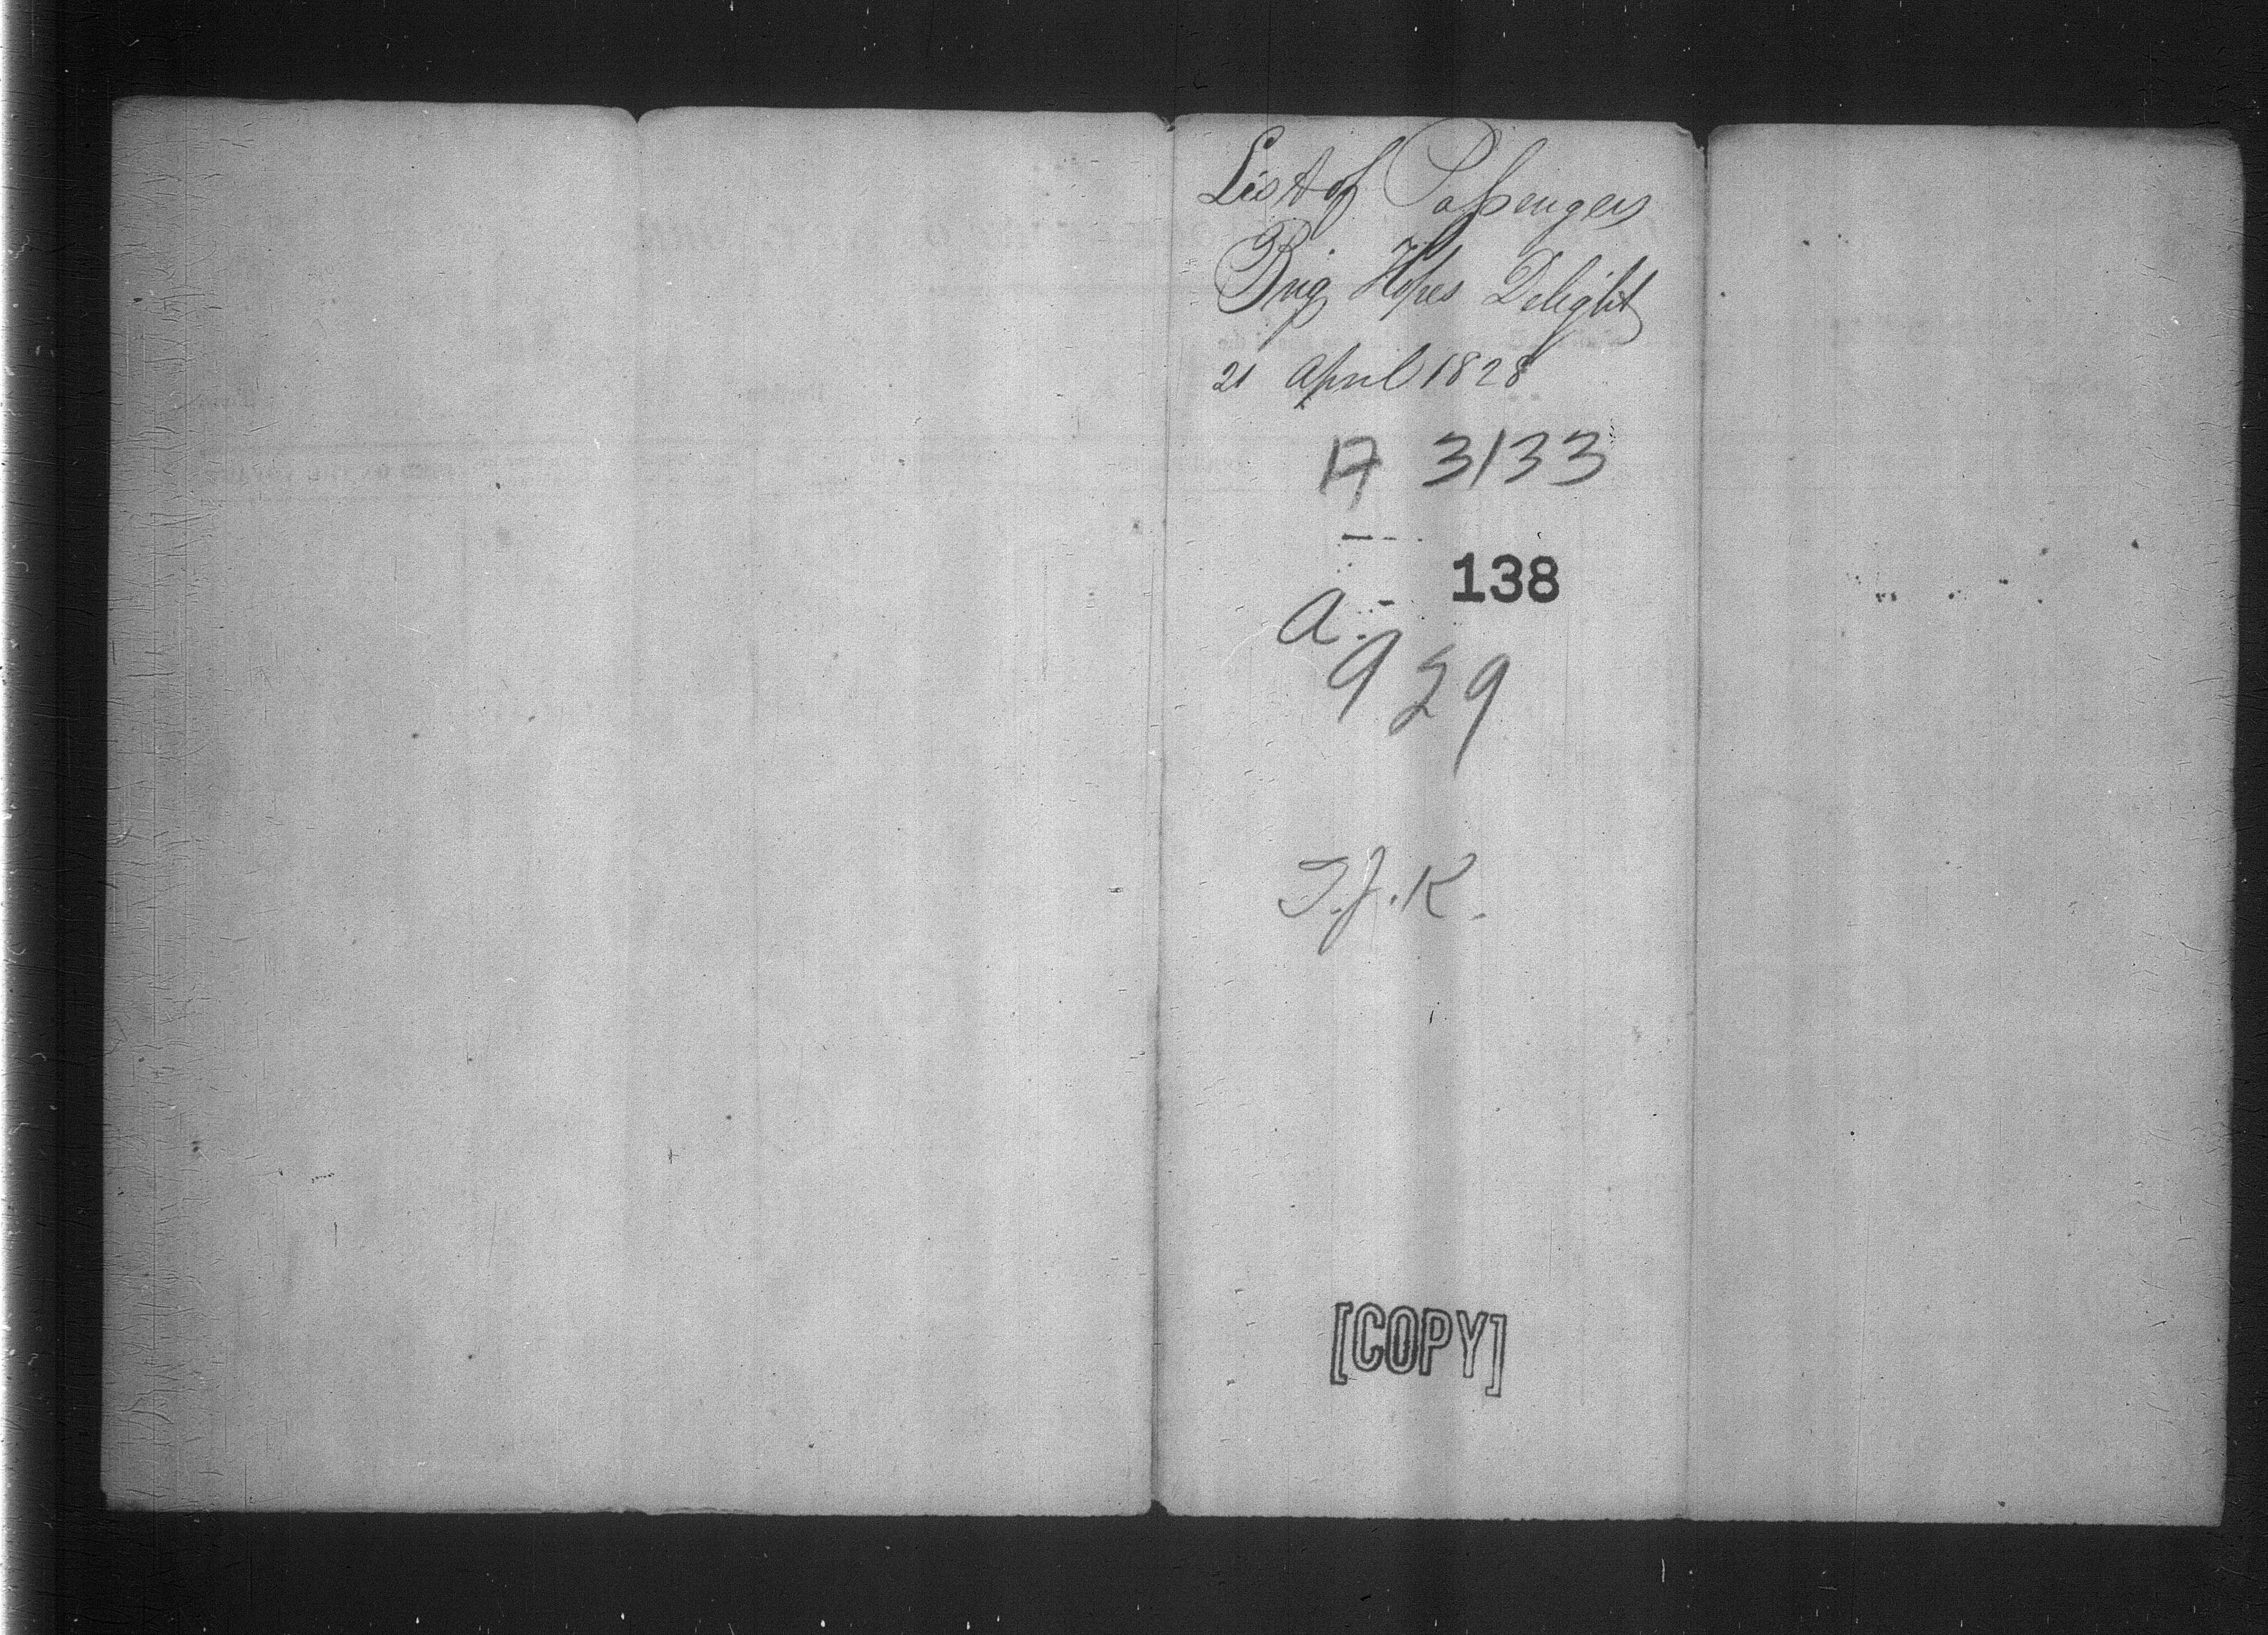 List of Passengers
Brig Hopes Delight
21 April 1828
A 3133
138
A.
929
T.J.K.
[COPY]